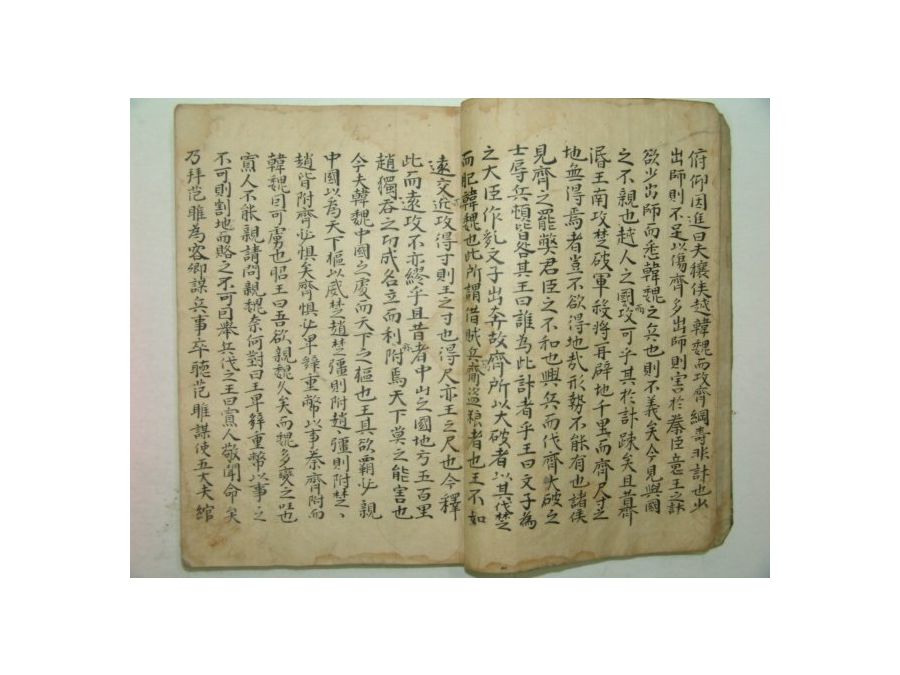 俯仰因進曰夫穰侯越韓魏而攻齊綱壽非計也少
出師則不足以傷齊多出師則害於秦臣意王之計
欲少出師而悉韓魏之兵也則不義矣今見與國
之不親也越人之國而攻可乎其於計疎矣且昔齊
湣王南攻楚破軍殺將再辟地千里而齊尺寸之
地無得焉者豈不欲得地哉形勢不能有也諸侯
見齊之罷獘君臣之不和也興兵而伐齊大破之
士辱兵頓皆咎其王曰誰為此計者乎王曰文子為
之大臣作乱文子出奔故齊所以大破者以其伐楚
而肥韓魏也此所謂借賊兵齎盜粮者也王不如
遠交近攻得寸則王之寸也得尺亦王之尺也今釋
此而遠攻不亦繆乎且昔者中山之國地方五百里
趙獨吞之功成名立而利附焉天下莫之能害也
今夫韓魏中國之處而天下之樞也王其欲霸必親
中國以為天下樞以威楚趙楚彊則附趙、彊則附楚、
趙皆附齊必懼矣齊懼必卑辭重幣以事秦齊附而
韓魏因可虜也昭王曰吾欲親魏久矣而魏多變之也
寡人不能親請問親魏柰何對曰王卑辭重幣以事之
不可則割地而賂之不可因舉兵伐之王曰寡人敬聞命矣
乃拜范雎為客卿謀兵事卒聽范雎謀使五大夫綰